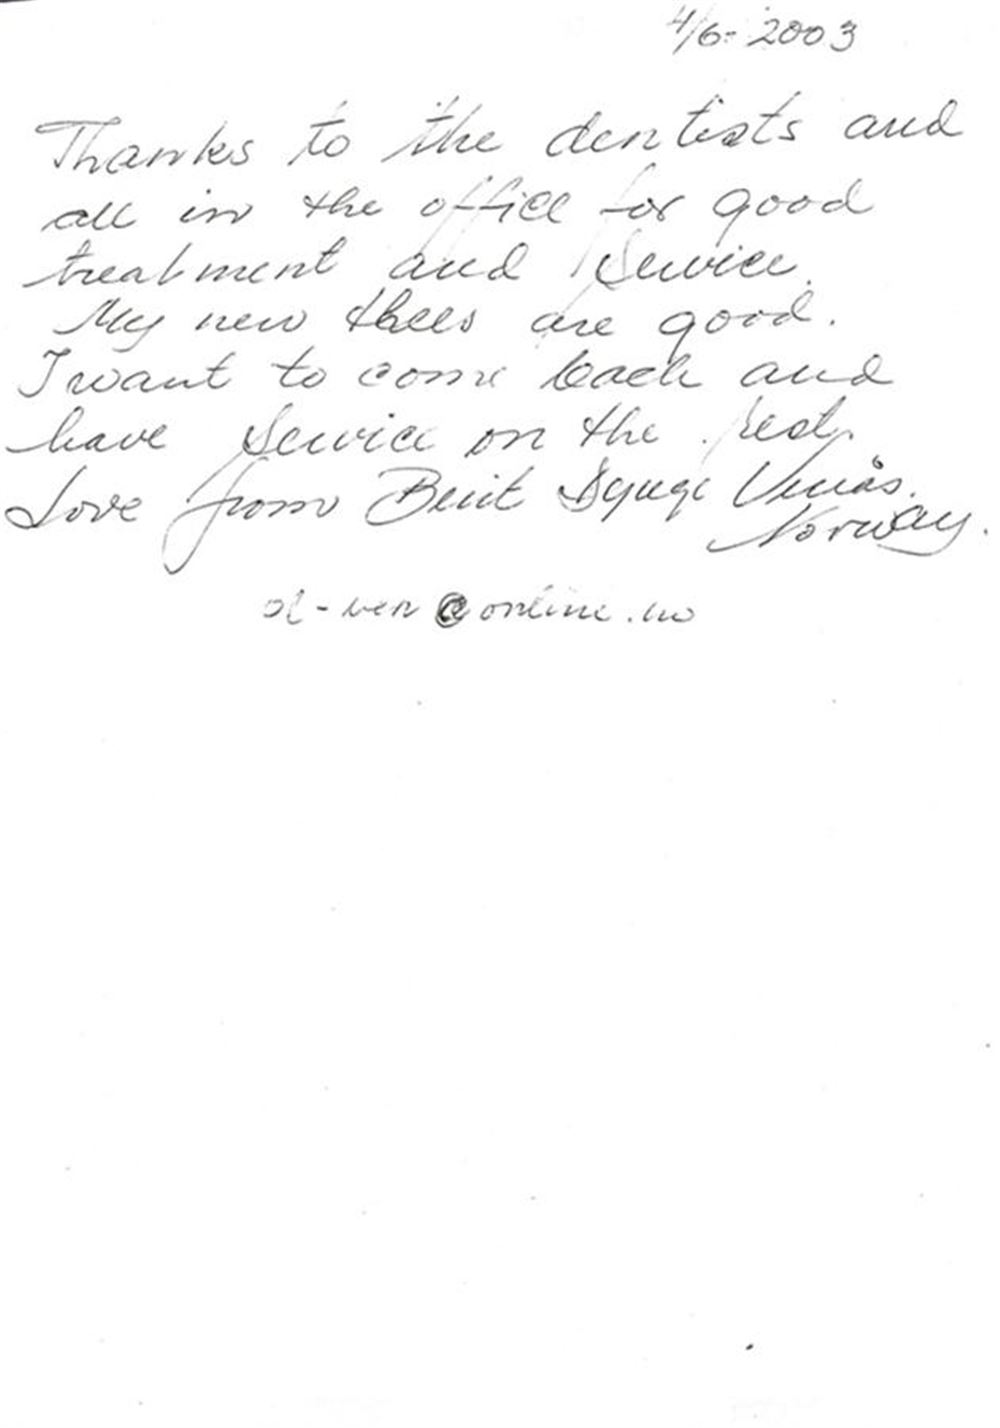 4/6-2003
Thanks to the dentists and
all in the office for good
treatment and service.
My new thees are good.
I want to come back and
have service on the rest.
Love from Berit
Norway.
ol-ven@online.no